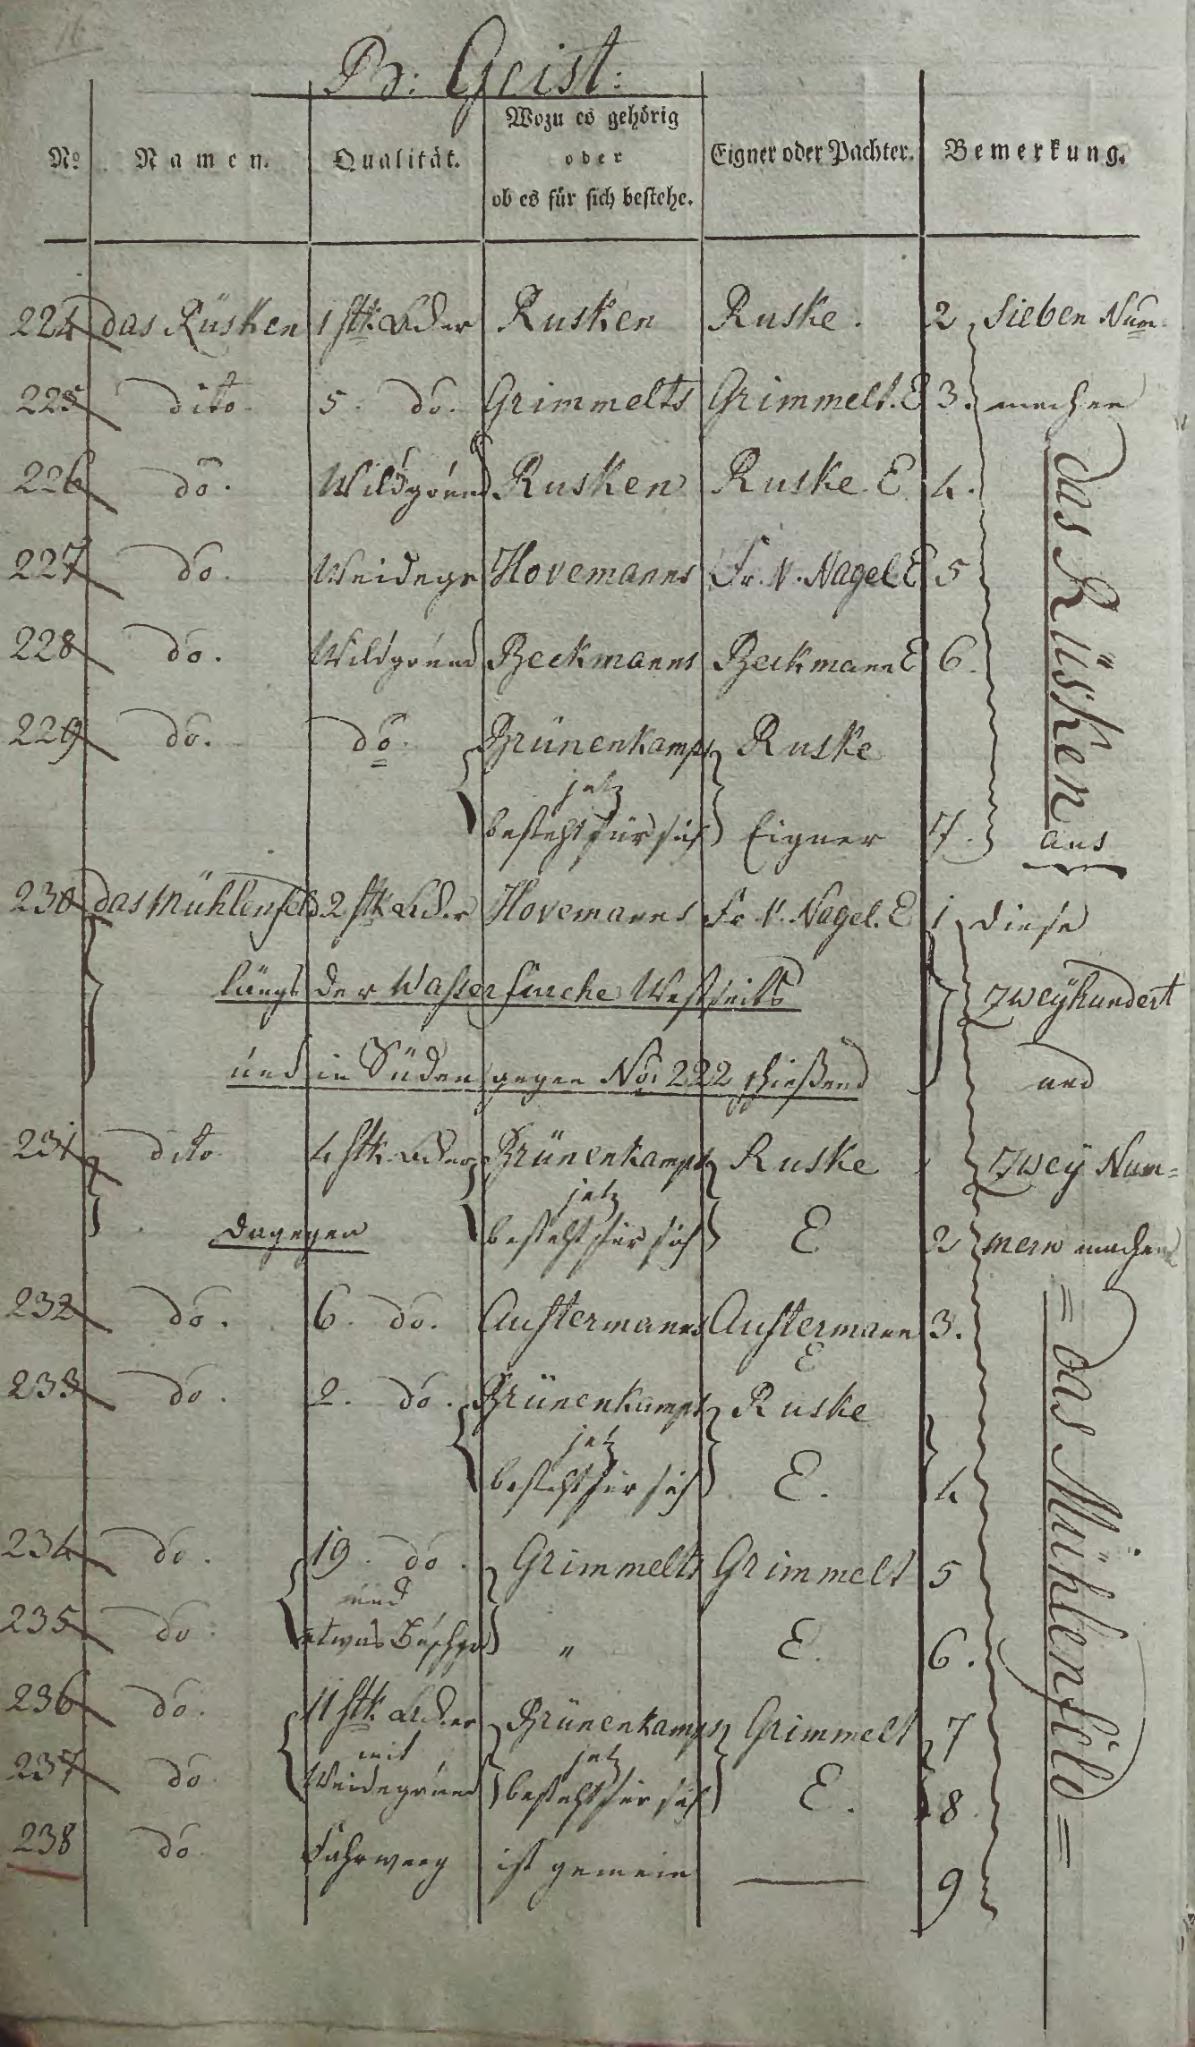 16
B: Geist:
No Namen. Qualität. Wozu es gehörig oder ob es für sich bestehe. Eigner oder Pachter. Bemerkung.
224 das Rüsken 1 stk. Acker Rusken Ruske. 2 Sieben Num-
225 dito. 5. do. Grimmelts Grimmelt. E 3. machen
226 do. Wildgrund Rusken Ruske. E. 4.
das Rüsken
227 do. Weidegr Hovemanns Fr. V. Nagel. E 5
228 do. Wildgrund Beckmanns Beckmann E 6.
229 do. do. Brünenkamps Ruske
jetz
besteht für sich Eigner 7. aus
230 das Mühlenfeld. 2 stk. Acker Hovemanns Fr. V. Nagel. E 1 diese
längs der Wasserfurche Westseits zweyhundert
und in Süden gegen No: 222 schießend und
231 dito 4 stk. Acker Brünenkamps Ruske zwey Num=
jetz
dagegen besteht für sich E 2 mern machen
232 do. 6. do. Austermanns Austermann 3.
E
= das Mühlenfeld =
233 do. 2. do. Brünenkamps Ruske
jetz
besteht für sich E. 4.
234 do. 19. do. Grimmelts Grimmelt 5
und
235 do. etwas Buschgr " E. 6.
236 do. 11 stk. Acker Brünenkamps Grimmelt 7
mit jetz
237 do. Weidegrund besteht für sich E. 8
238 do. Fuhrweeg ist gemein — 9